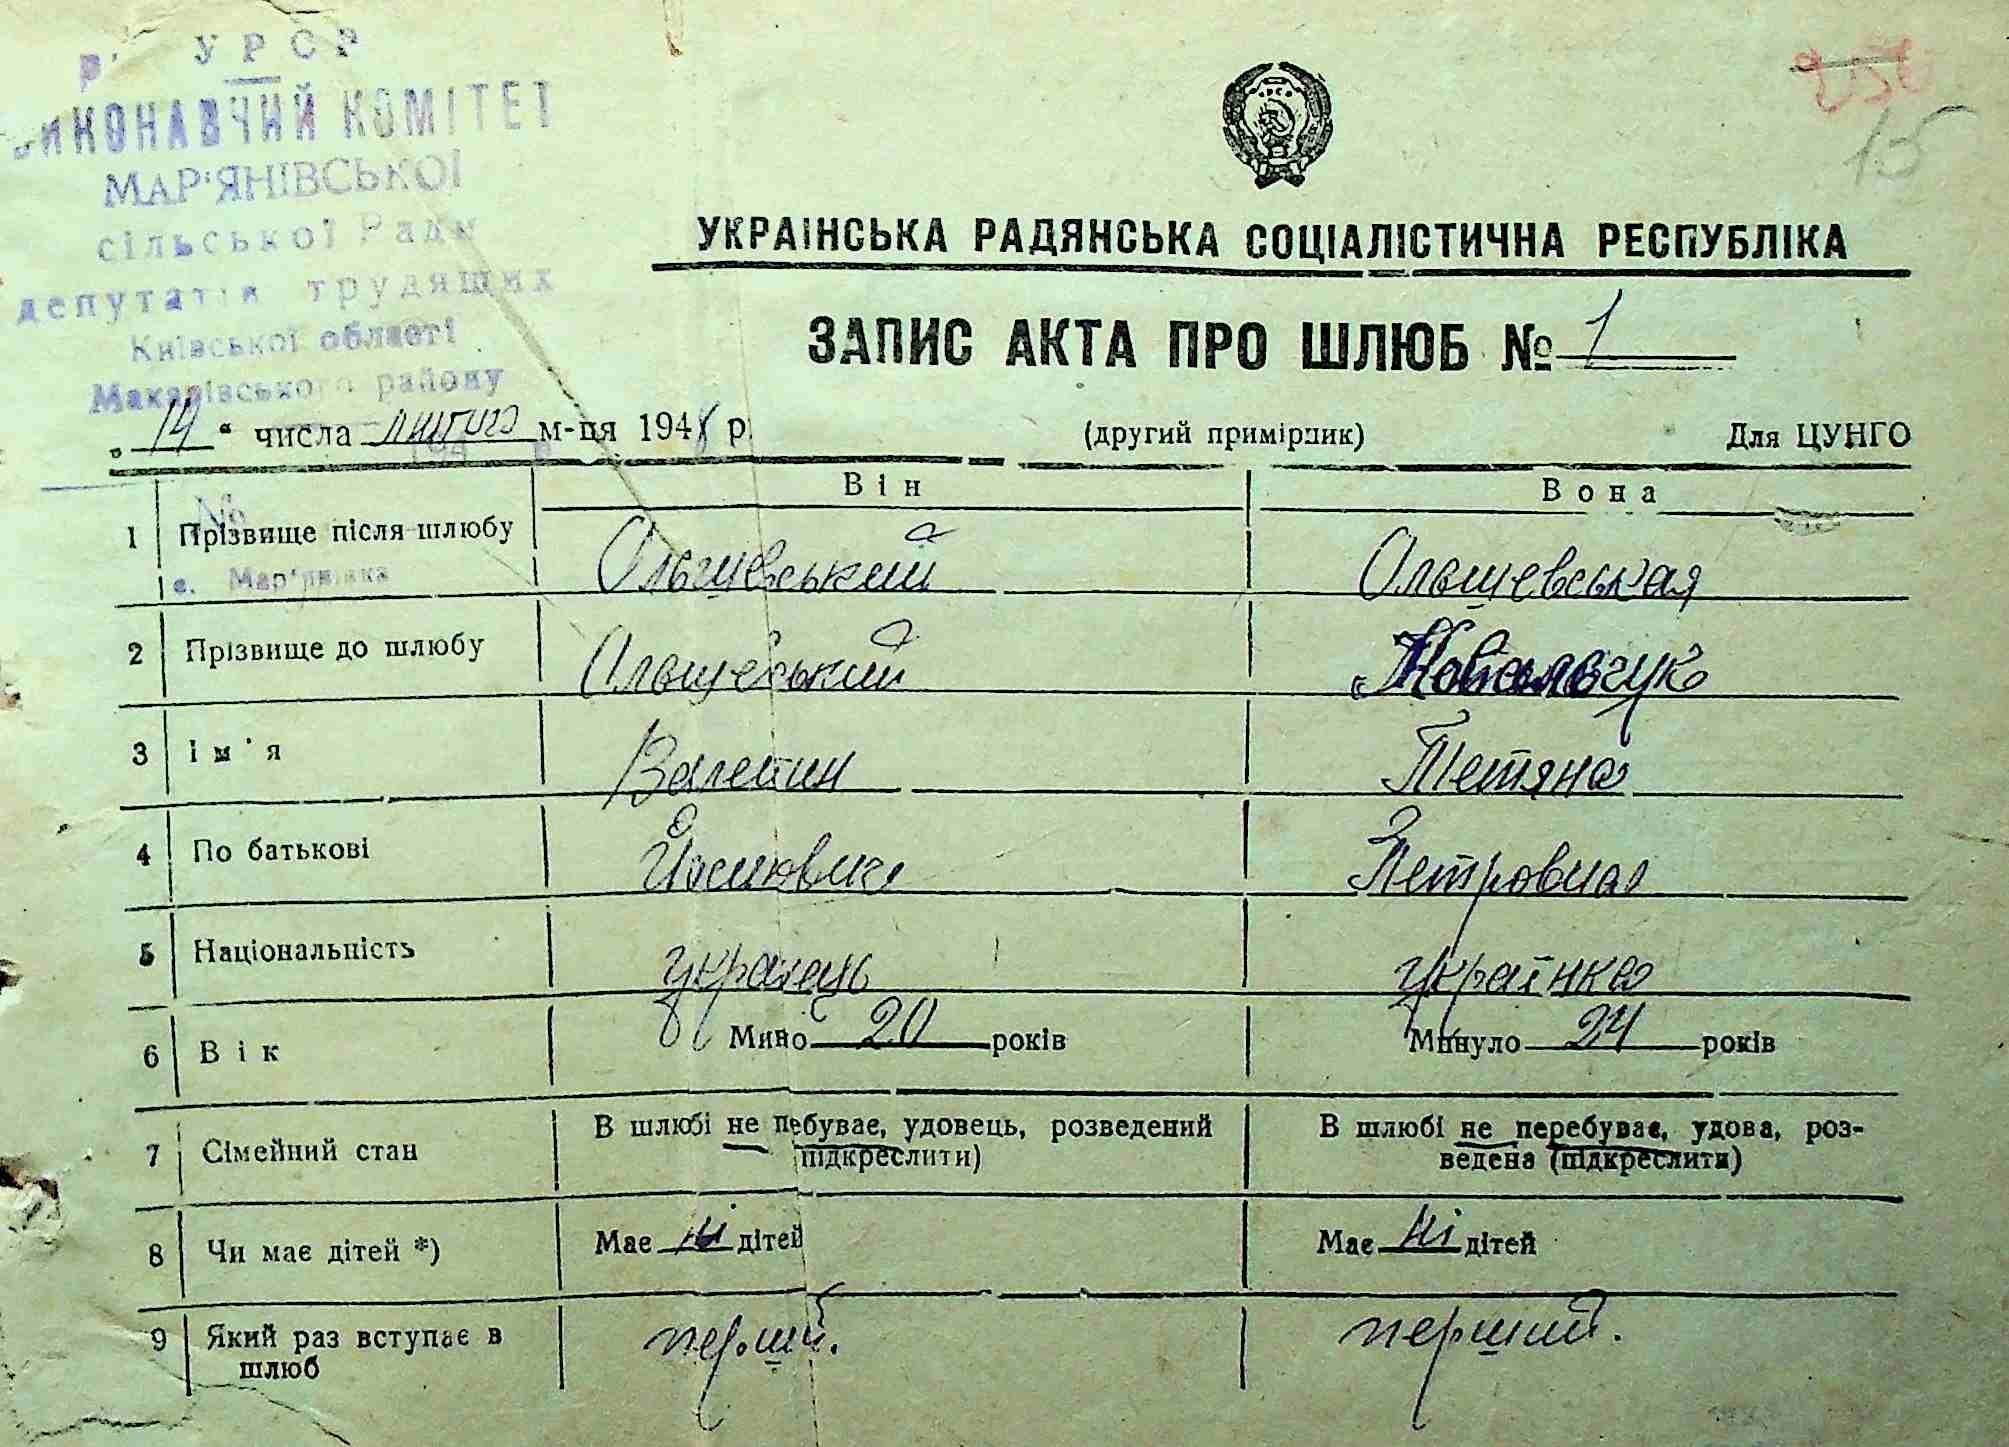 УРСР
ВИКОНАВЧИЙ КОМІТЕТ
МАР'ЯНІВСЬКОЇ
сільської Ради
депутатів трудящих
Київської області
Макарівського району
15
УКРАЇНСЬКА РАДЯНСЬКА СОЦІАЛІСТИЧНА РЕСПУБЛІКА
ЗАПИС АКТА ПРО ШЛЮБ № 1
„14“ числа лютого м-ця 1948 р.
(другий примірник) Для ЦУНГО
Він Вона
№
1 Прізвище після шлюбу Ольшевський Ольшевська
с. Мар'янівка
2 Прізвище до шлюбу Ольшевський Ковальчук
3 Ім'я Валентин Тетяна
4 По батькові Йосипович Петровна
5 Національність українець українка
6 Вік Мино 20 років Минуло 24 років
7 Сімейний стан В шлюбі не пебуває, удовець, розведений В шлюбі не перебуває, удова, роз-
підкреслити) ведена (підкреслити)
8 Чи має дітей *) Має ні дітей Має ні дітей
9 Який раз вступає в перший. перший.
шлюб